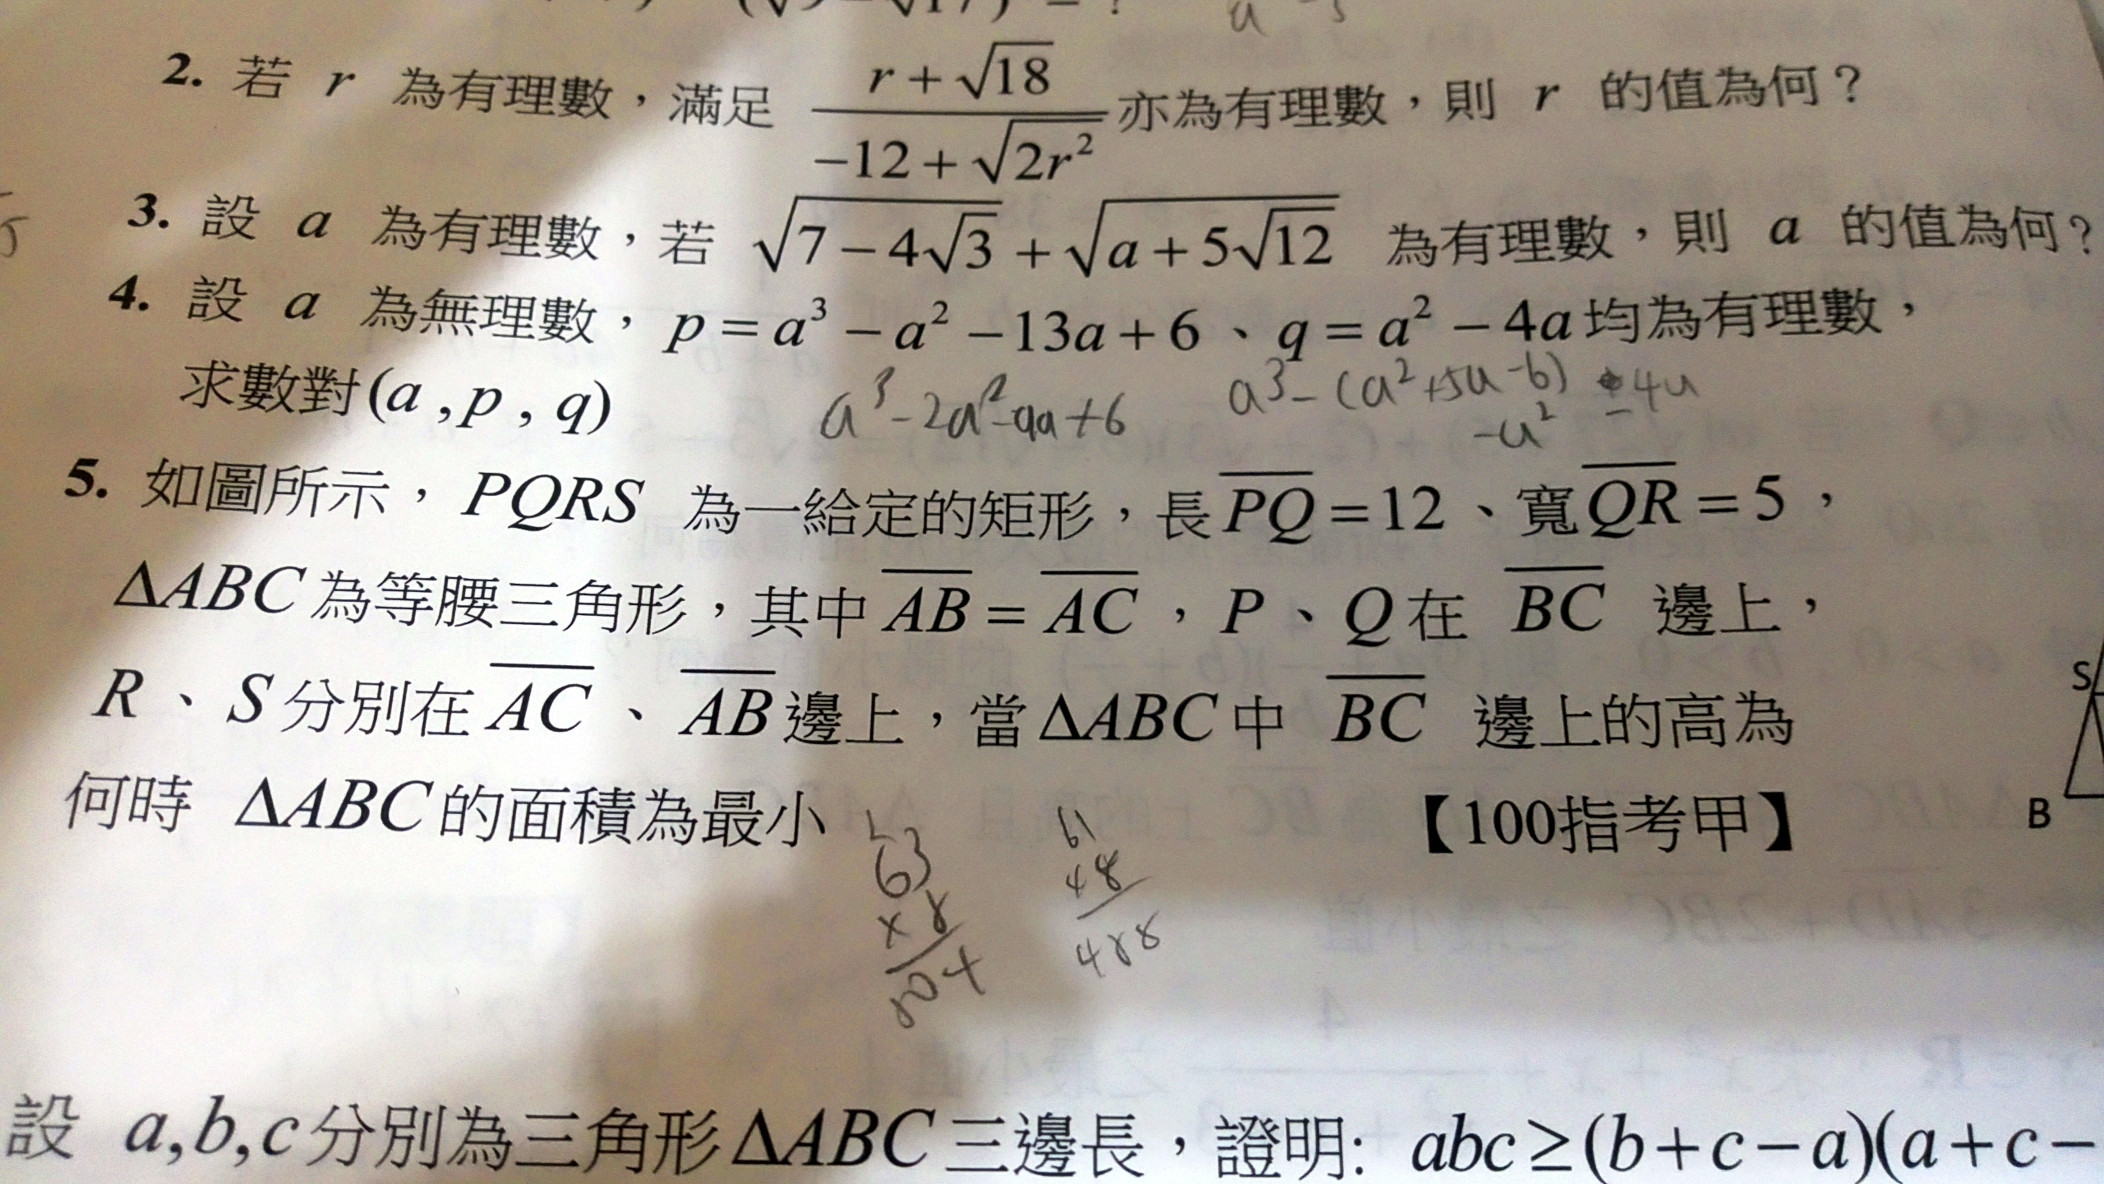 2. 若 r 為有理數,滿足 \frac{r+\sqrt{18}}{-12+\sqrt{2r^2}} 亦為有理數,則 r 的值為何?
3. 設 a 為有理數,若 \sqrt{7-4\sqrt{3}}+\sqrt{a+5\sqrt{12}} 為有理數,則 a 的值為何?
4. 設 a 為無理數,p=a³-a²-13a+6、q=a²-4a均為有理數,
求數對(a,p,q)
a³-2a²-9a+6
a³-(a²+5a-6)
-4a
-a²
5. 如圖所示,PQRS 為一給定的矩形,長\overline{PQ}=12、寬\overline{QR}=5,
ΔABC為等腰三角形,其中\overline{AB}=\overline{AC},P、Q在 \overline{BC} 邊上,
R、S分別在\overline{AC}、\overline{AB}邊上,當ΔABC中 \overline{BC} 邊上的高為
何時 ΔABC的面積為最小
【100指考甲】
S
B
63
x8
504
61
48
488
設 a,b,c分別為三角形ΔABC三邊長,證明: abc≥(b+c-a)(a+c-